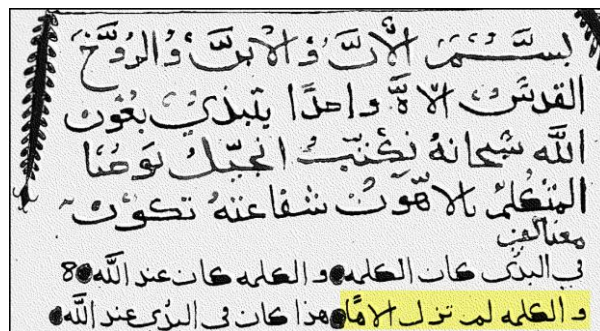 بسم الاب و الابن و الروح
القدس الاه واحدا يتبدئ بعون
الله سبحانه نكتب انجيل يوحنا
المتكلم بالاهوت شفاعته تكون
معنا امين
في البدئ كان الكلمه ● و الكلمه كان عند الله ● 8
و الكلمه لم تزل الاها ● هذا كان في البدئ عند الله ●